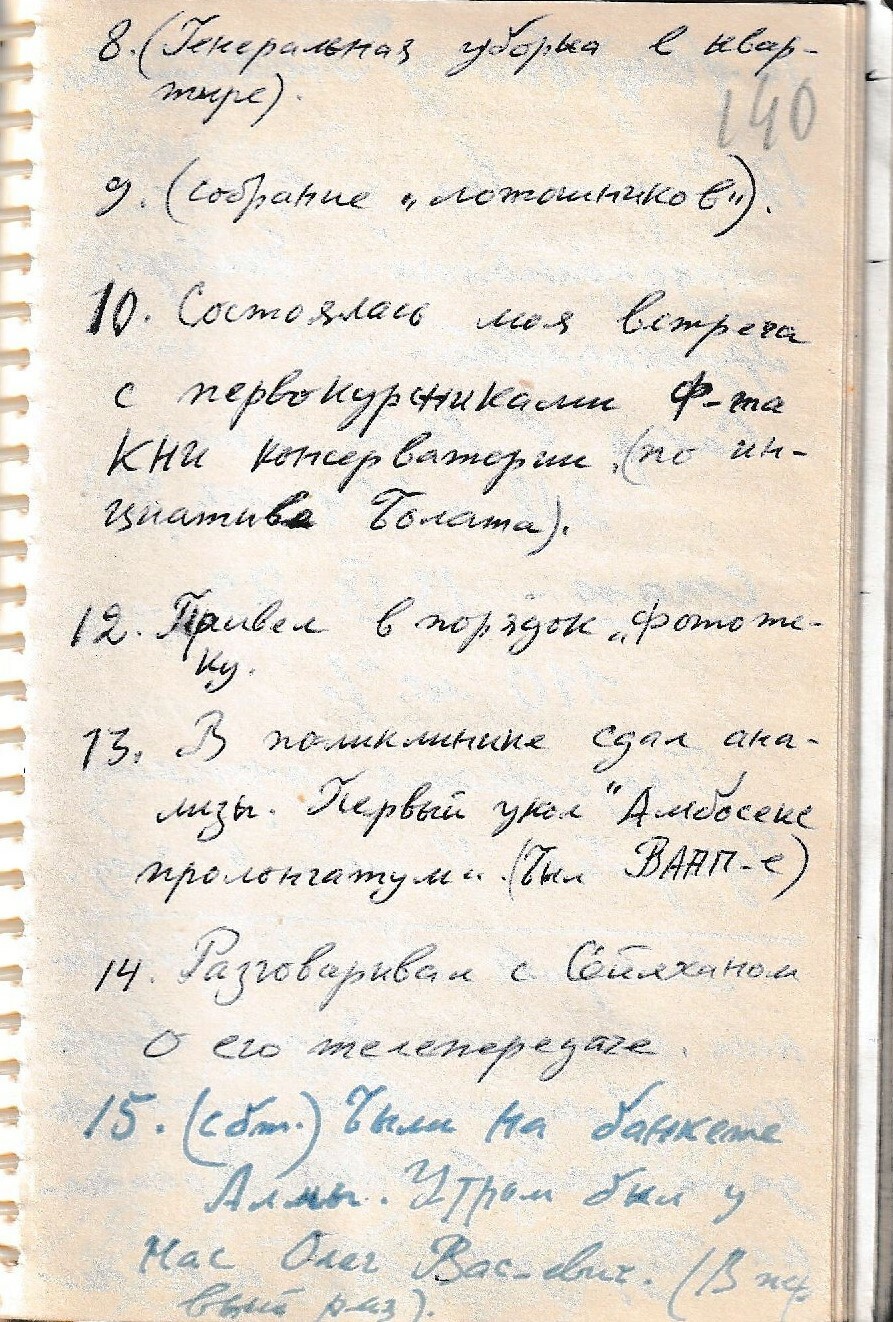 8. (Генеральная уборка в квар-
тире).
140
9. (собрание „лотошников“).
10. Состоялась моя встреча
с первокурсниками Ф-та
КНИ консерватории (по ин-
циативе Болата).
12. Привел в порядок „фототе-
ку.
13. В поликлинике сдал ана-
лизы. Первый укол "Амбосекс
пролонгатум“. (был ВААП-е)
14. Разговаривал с Сейлханом
о его телепередаче.
15. (сбт.) Были на банкете
Алмы. Утром был у
нас Олег Вас-евич. (В пер
вый раз).